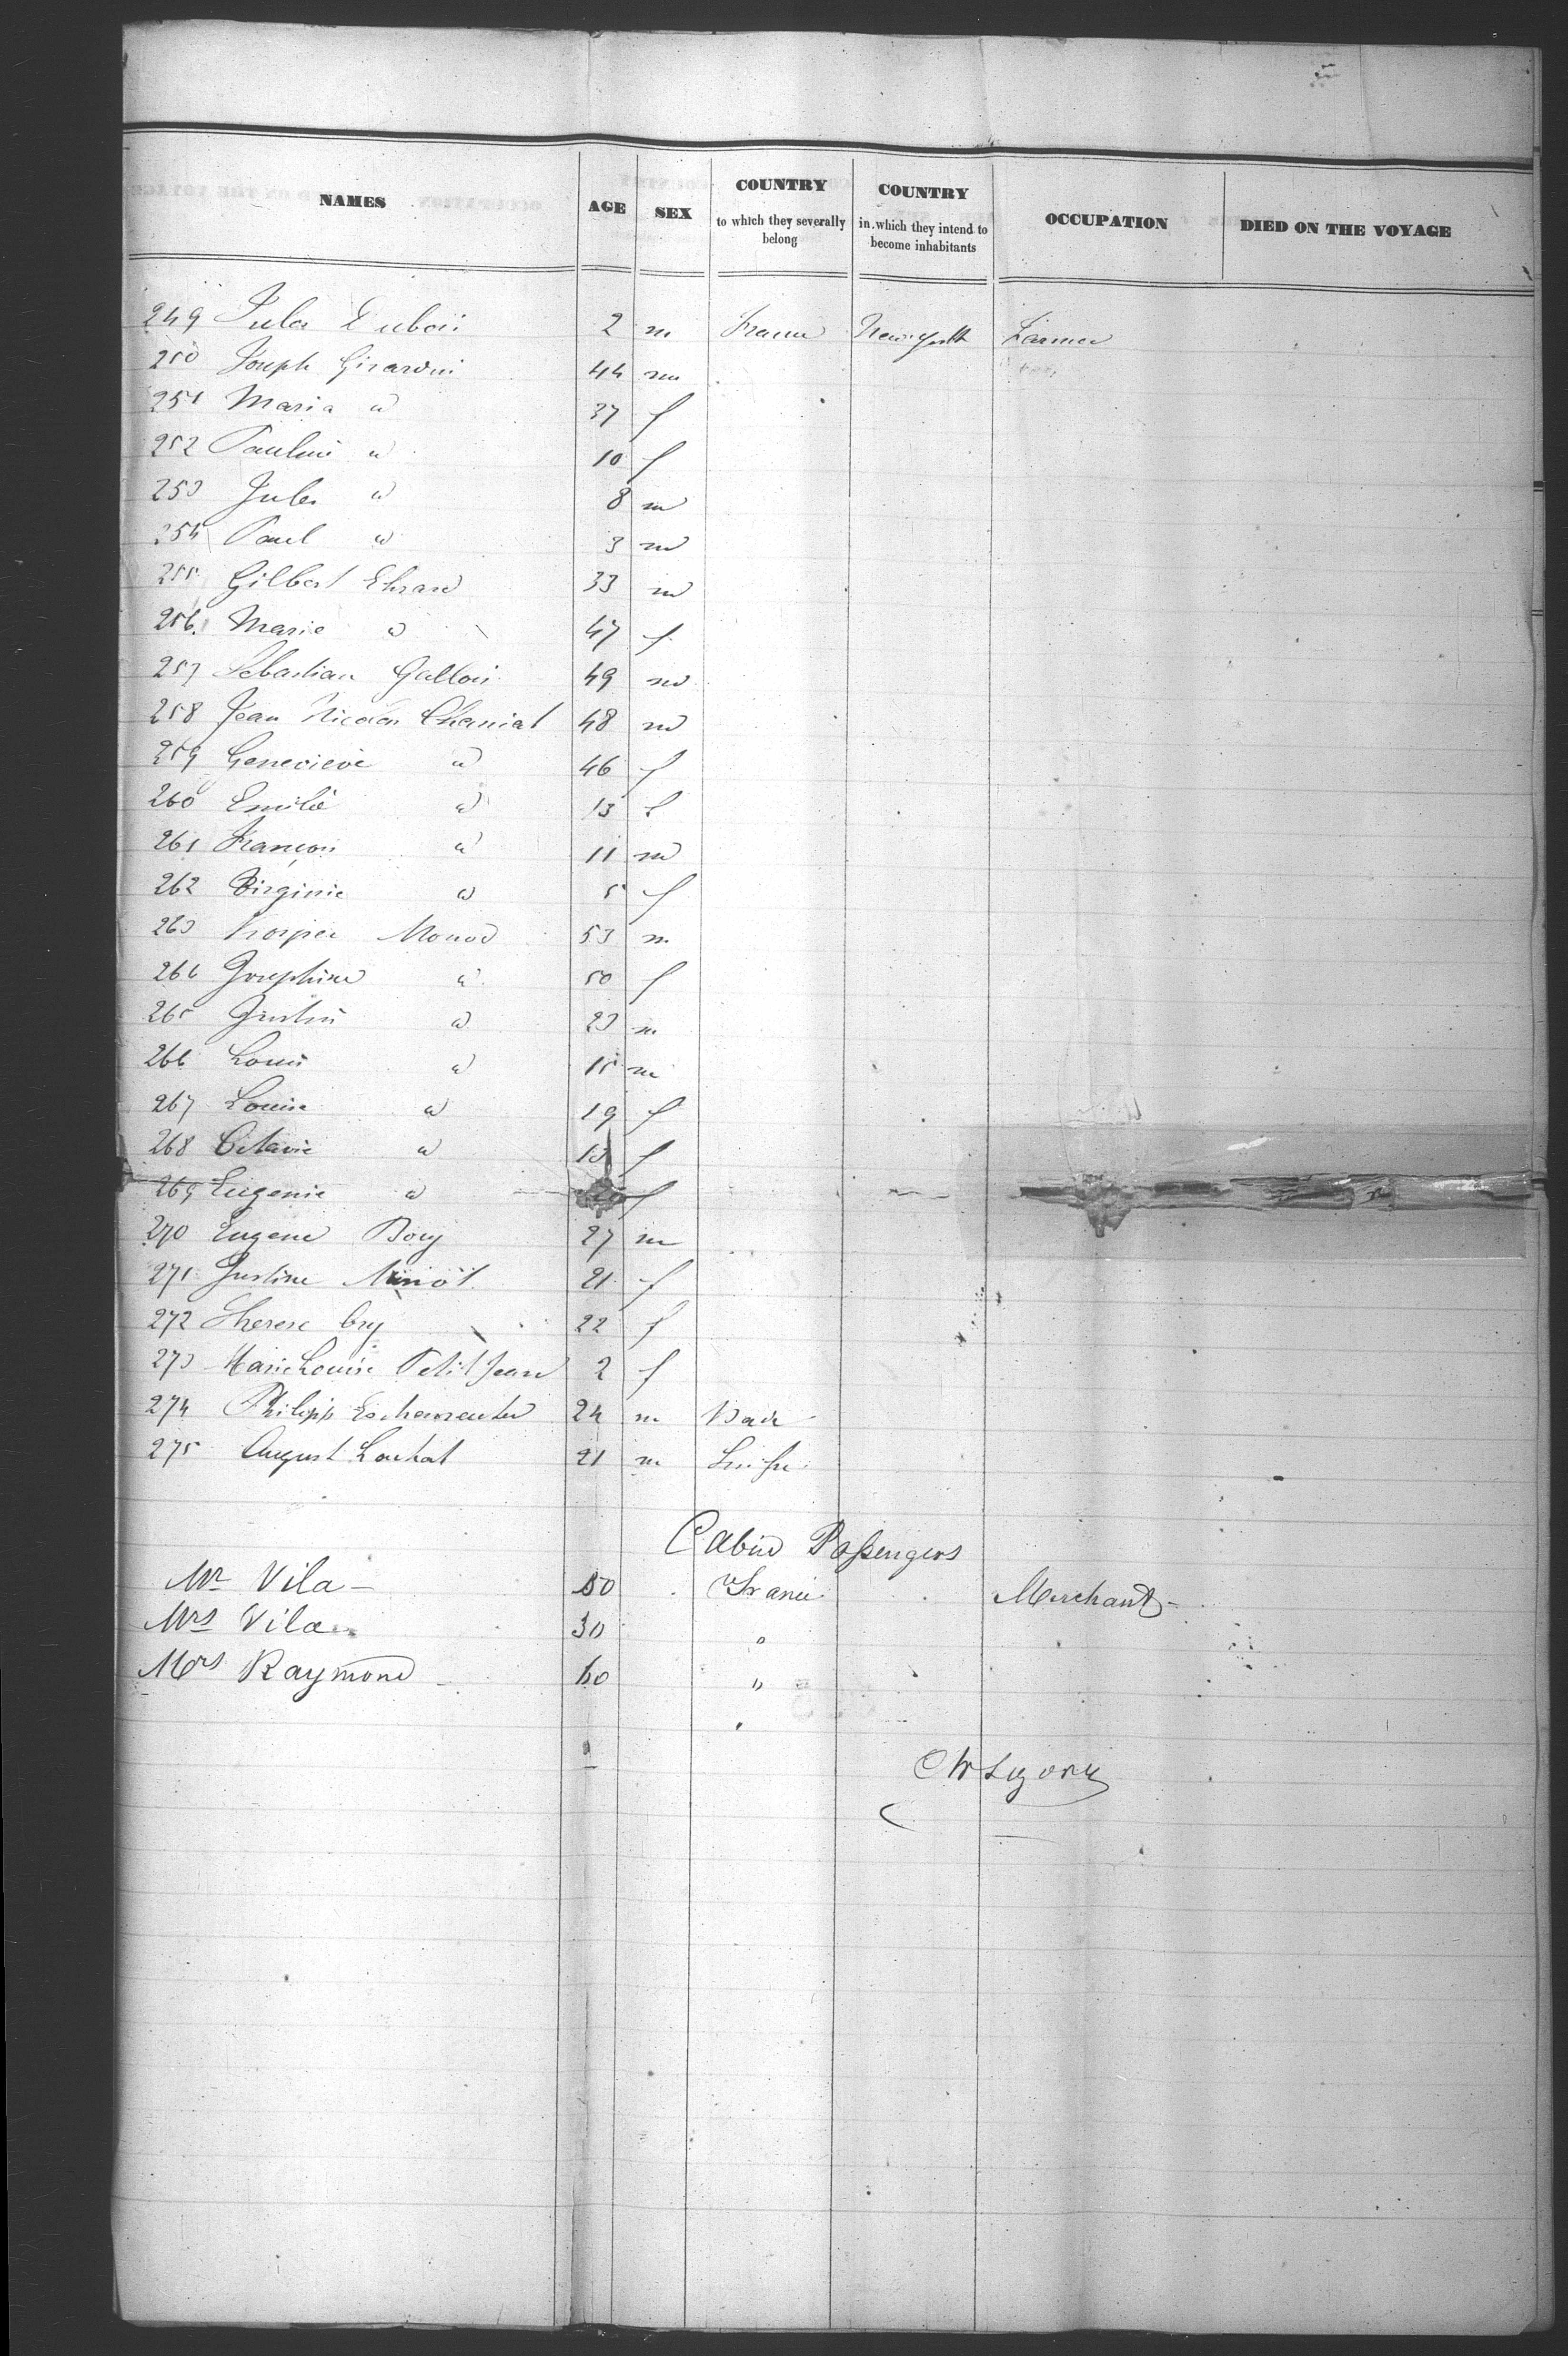 NAMES AGE SEX COUNTRY to which they severally belong COUNTRY in which they intend to become inhabitants OCCUPATION DIED ON THE VOYAGE
249 Jules Dubois 2 m France New York Farmer
250 Joseph Girardin 44 m
251 Maria " 37 f
252 Pauline " 10 f
253 Jules " 8 m
254 Paul " 3 m
255 Gilbert Ehrard 33 m
256 Marie " 47 f
257 Sebastian Gallois 49 m
258 Jean Nicolas Chaniat 48 m
259 Genevieve " 46 f
260 Emilie " 13 f
261 François " 11 m
262 Virginie " 5 f
263 Prosper Monod 53 m
264 Josephine " 50 f
265 Justin " 23 m
266 Louis " 15 m
267 Louise " 19 f
268 Octavie " 13 f
269 Eugenie " f
270 Eugene Bory 27 m
271 Justine 21 f
272 Therese 22 f
273 Marie Louise Petit Jean 2 f
274 Philipp 24 m Bade
275 August Louhat 21 m
Cabin Passengers
Mr Vila 50 France Merchant
Mrs Vila 30 "
Mrs Raymond 60 "